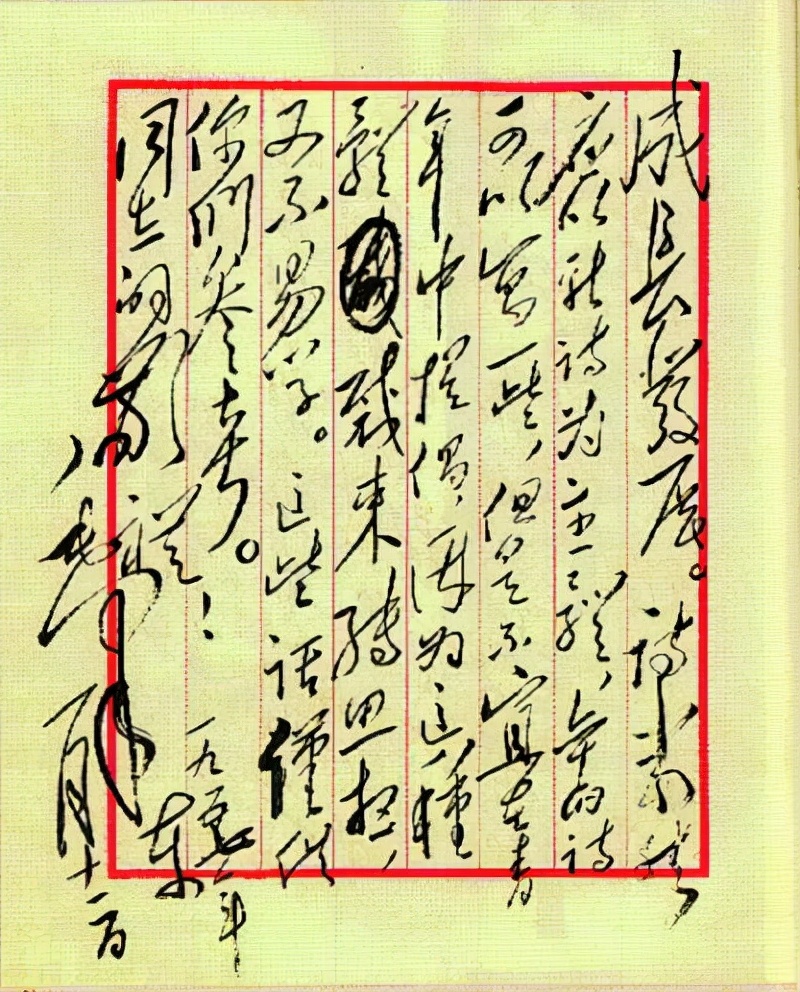 成長發展。詩當然
應以新詩為主體，舊詩
可以寫一些，但是不宜在青
年中提倡，因為這種
體裁束縛思想，
又不易学。这些话僅供
你們參考。
同志的敬禮！
毛澤東
一九五七年
一月十二日